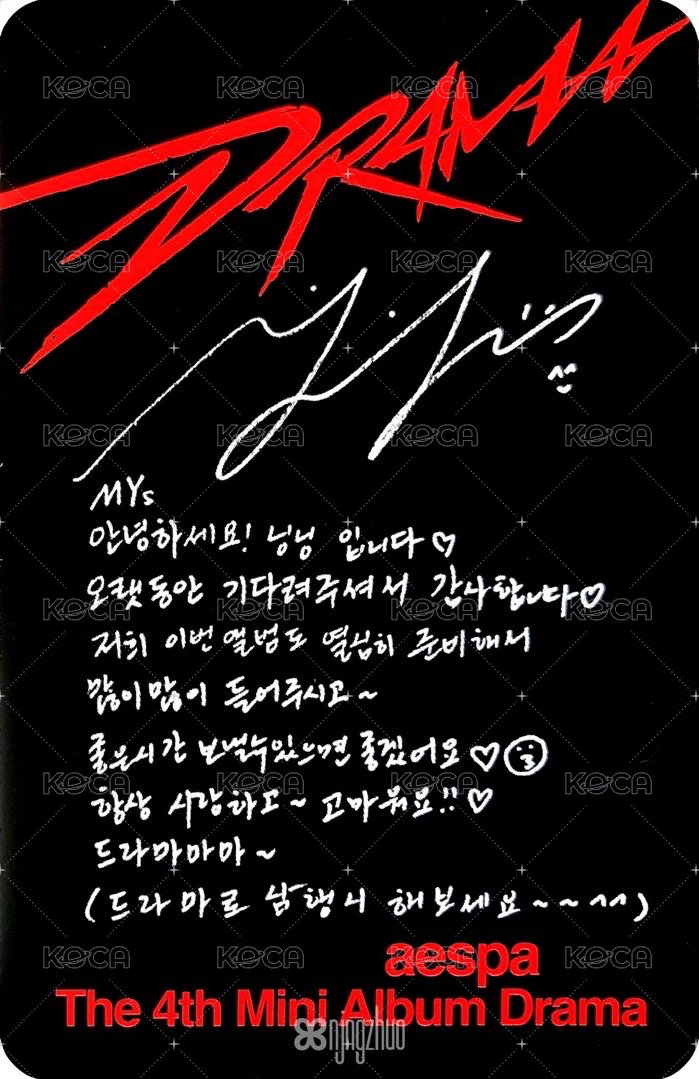 DRAMA
MYs
안녕하세요! 닝닝 입니다♡
오랫동안 기다려주셔서 감사합니다♡
저희 이번 앨범도 열심히 준비해서
많이많이 들어주시고~
좋은시간 보낼수있으면 좋겠어요♡
항상 사랑하고~ 고마워요!!♡
드라마마마~
(드라마로 삼행시 해보세요~~^^)
aespa
The 4th Mini Album Drama
njagzhuo
KOCA